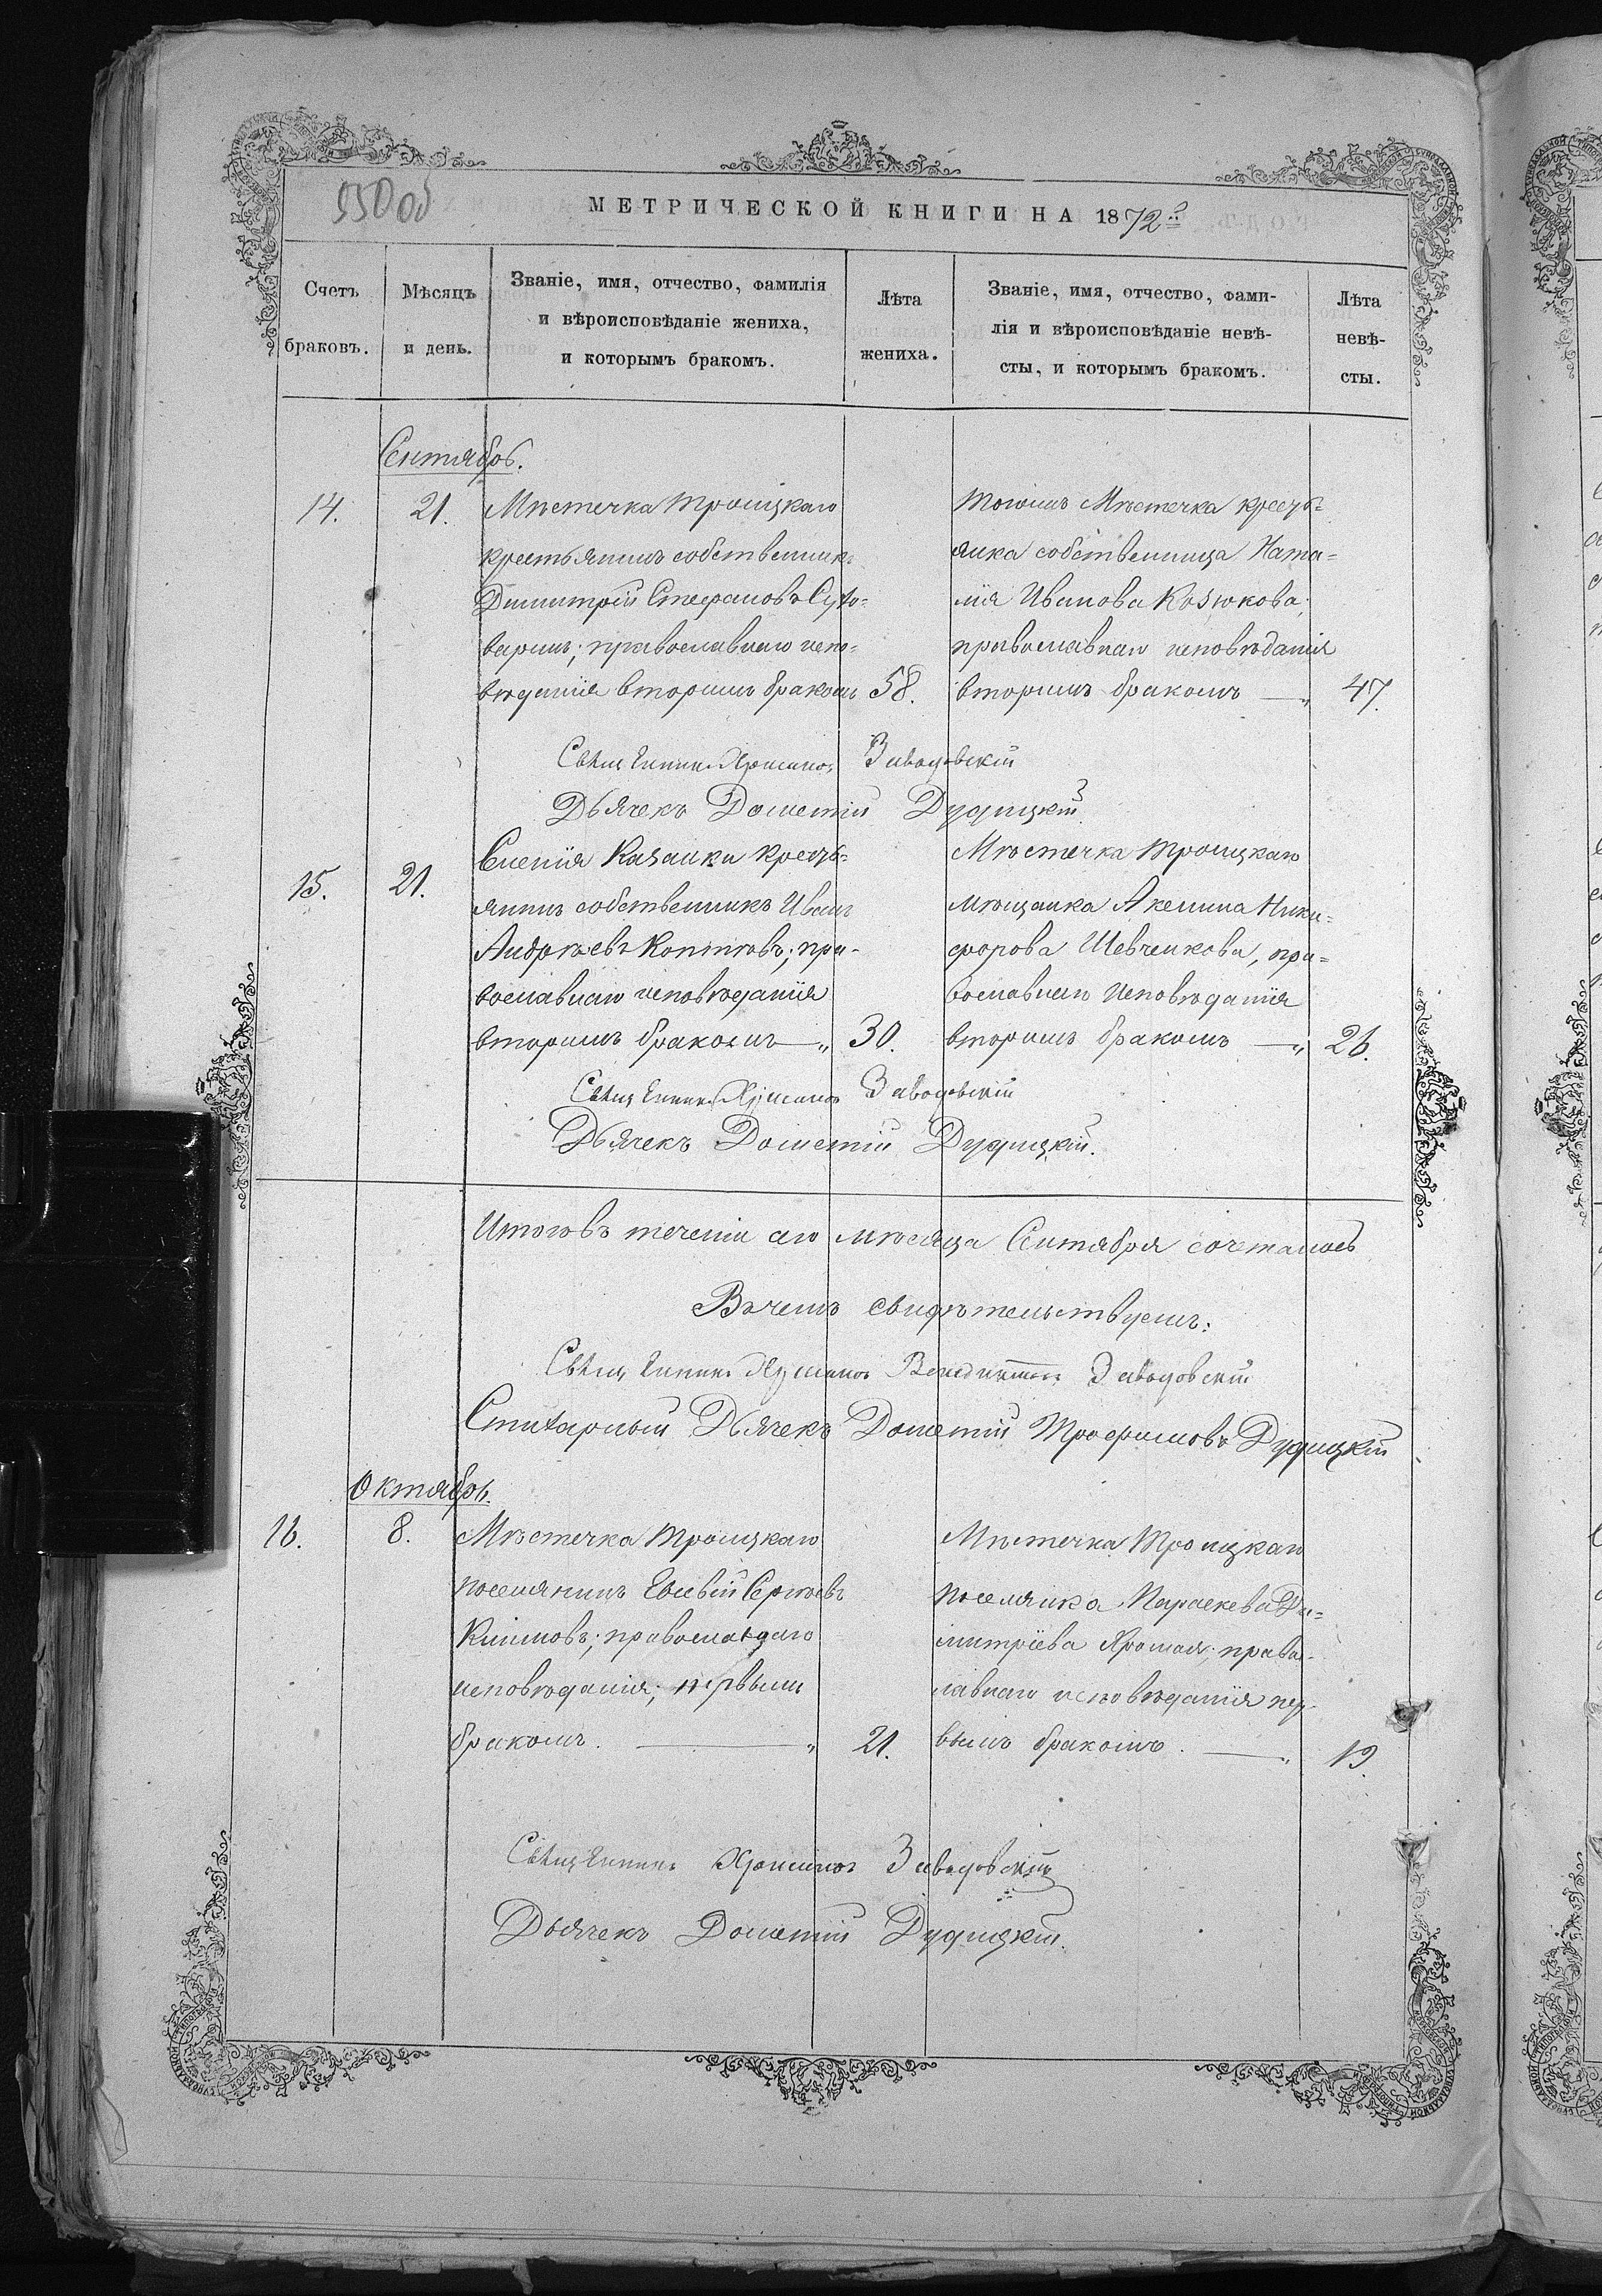 550 об
МЕТРИЧЕСКОЙ КНИГИ НА 1872 г.
Счетъ браковъ.
Мѣсяцъ и день.
Званіе, имя, отчество, фамилія
и вѣроисповѣданіе жениха,
и которымъ бракомъ.
Лѣта жениха.
Званіе, имя, отчество, фами-
лія и вѣроисповѣданіе невѣ-
сты, и которымъ бракомъ.
Лѣта невѣ-
сты.
Сентябрь.
14.
21.
Мѣстечка Троицкаго
крестьянинъ собственникъ
Димитрій Стефановъ Сухо-
варинъ; православнаго испо-
вѣданія вторымъ бракомъ
58.
Тогожъ Мѣстечка кресть-
янка собственница Ната-
лія Иванова Козюкова;
православнаго исповѣданія
вторымъ бракомъ — „
47.
Священникъ Хрисанѳъ Заводовскій
Дьячекъ Дометій Дудицкій
15.
21.
Селенія Казанки кресть-
янинъ собственникъ Иванъ
Андреевъ Копитовъ; пра-
вославнаго исповѣданія
вторымъ бракомъ — „
30.
Мѣстечка Троицкаго
мѣщанка Аксинья Ники-
форова Шевченкова, пра-
вославнаго исповѣданія
вторымъ бракомъ — „
26.
Священникъ Хрисанѳъ Заводовскій
Дьячекъ Дометій Дудицкій.
Итого въ теченіи сего мѣсяца Сентября сочеталось
Въ чемъ свидѣтельствуемъ:
Священникъ Хрисанѳъ Венедиктовъ Заводовскій
Стихарный Дьячекъ Дометій Трофимовъ Дудицкій
Октябрь.
16.
8.
Мѣстечка Троицкаго
поселянинъ Евсевій Сергѣевъ
Климовъ; православнаго
исповѣданія; первымъ
бракомъ. — „
21.
Мѣстечка Троицкаго
поселянка Параскева Ди-
митріева Хромая; правос-
лавнаго исповѣданія пер-
вымъ бракомъ. — „
19.
Священникъ Хрисанѳъ Заводовскій
Дьячекъ Дометій Дудицкій.